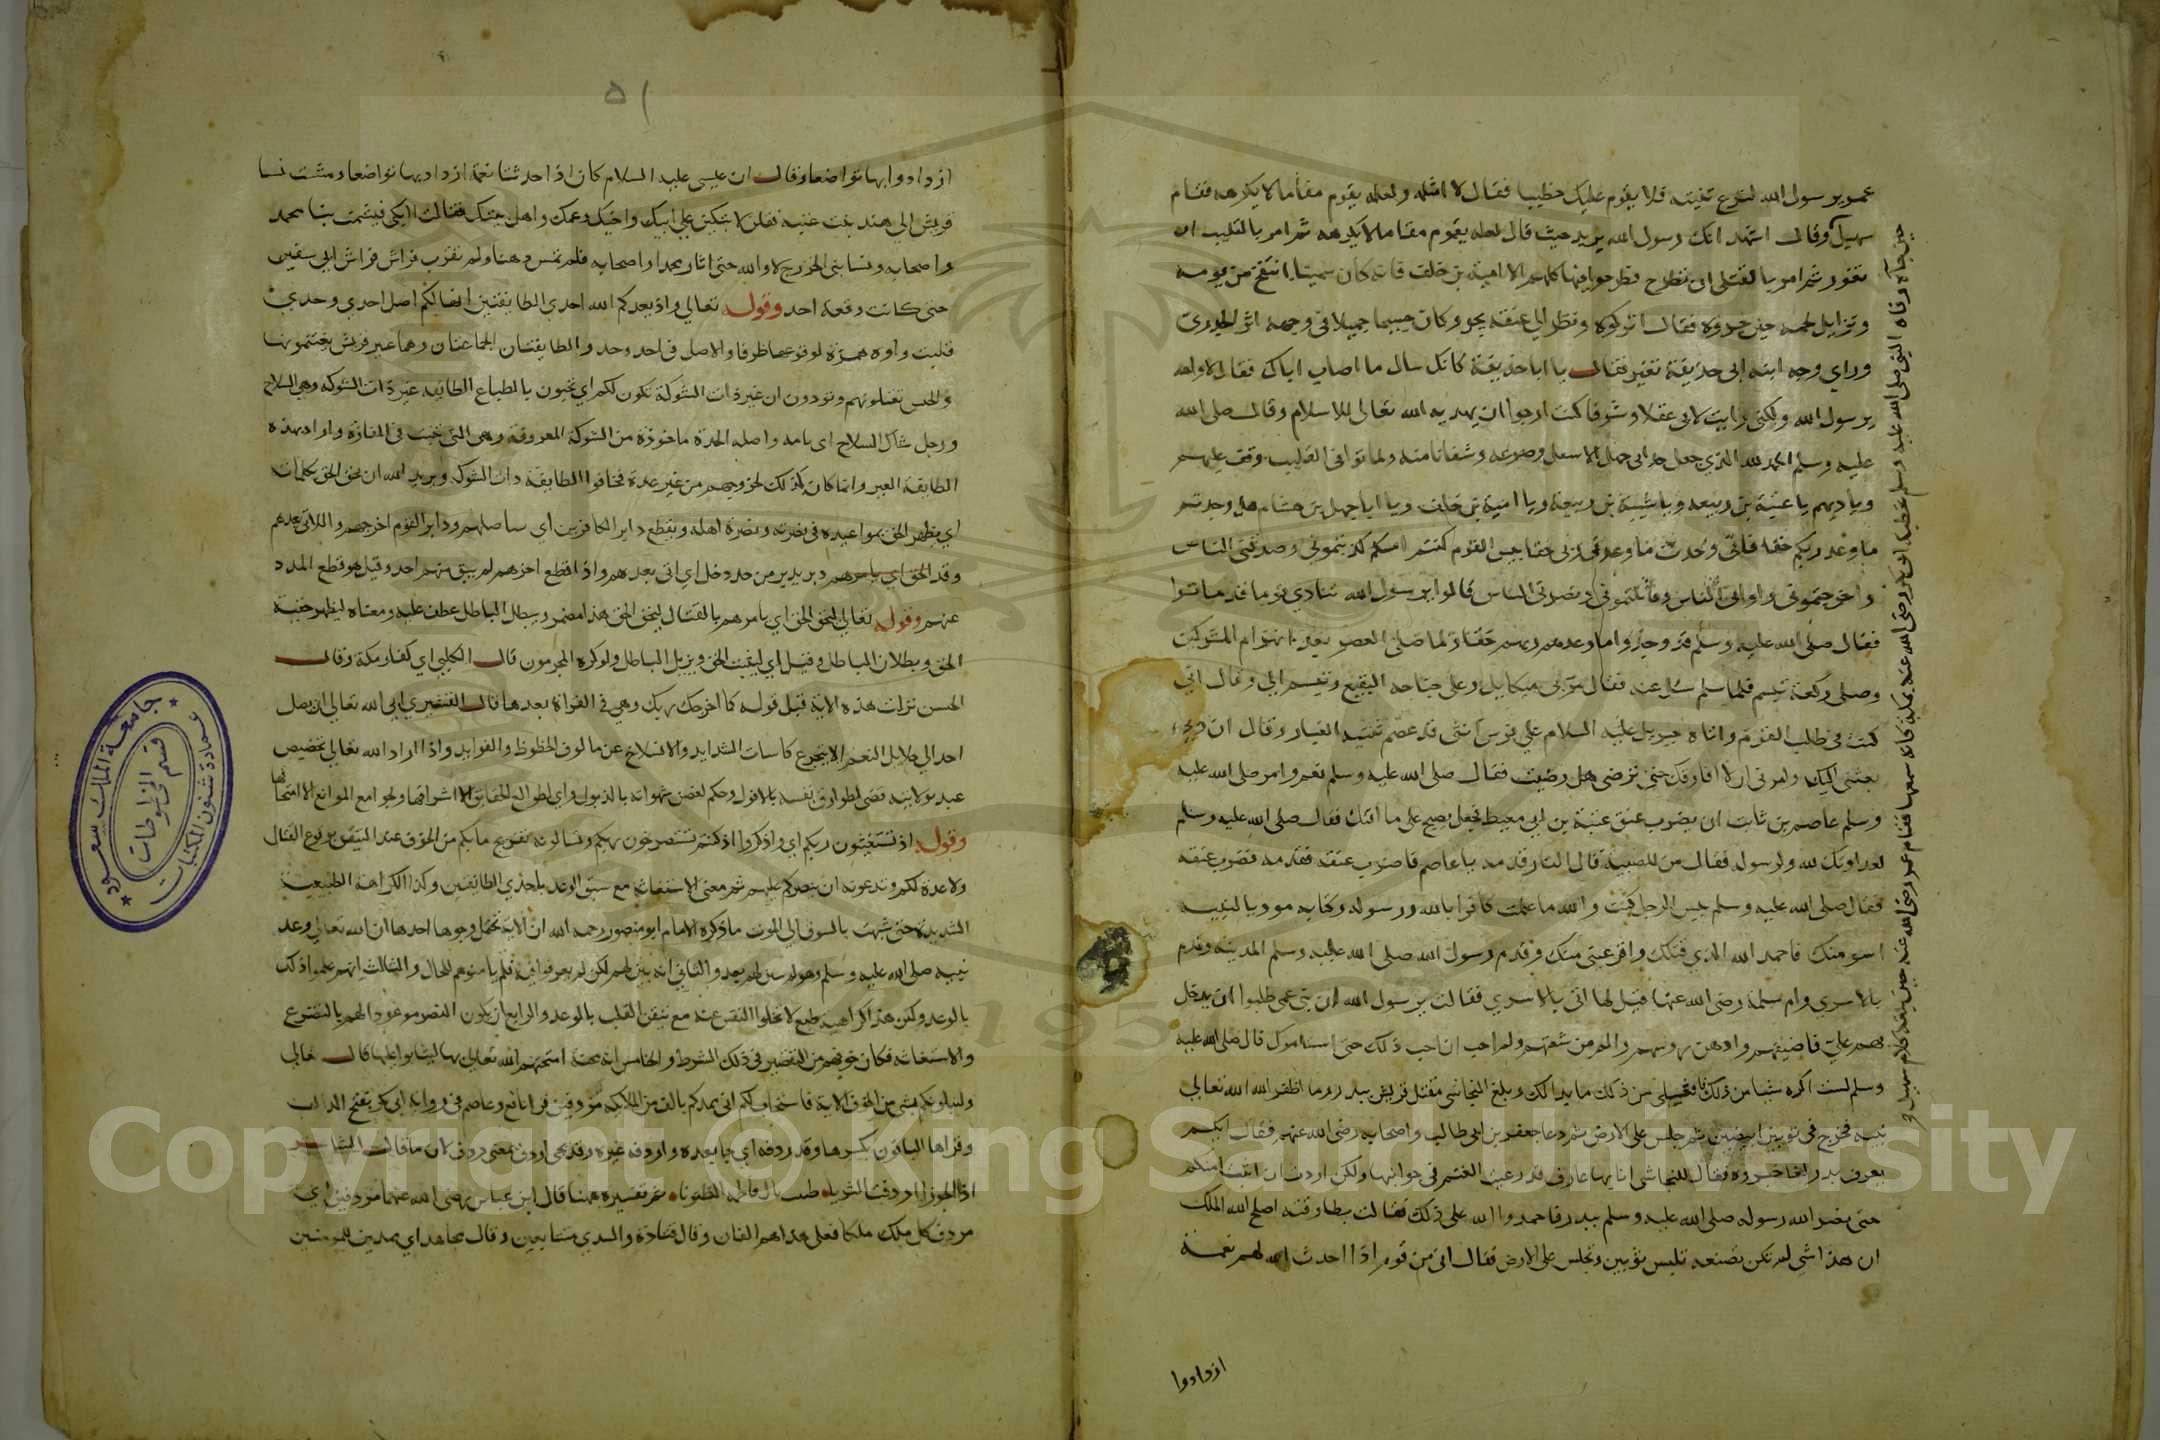 عمرو يرسول الله لننزع ثنيته فلا يقوم عليك خطيبا فقال لا امثله ولعله يقوم مقاما لا يكرهه فقام
سهيل وقال اشهد انك رسول الله يريد حيث قال لعله يقوم مقاما لا يكرهه ثم امر بالقليب ان
تغور ثم امر بالقتلى ان تطرح فطرحوا فيها كلهم الا امية بن خلف فانه كان سمينا انتفخ من يومه
وتزايل لحمه حين جروه فقال اتركوه ونظر الي عتبة يجر وكان جسيما جميلا في وجهه اثر الجدري
وراي وجه ابنه ابي حذيفة تغير فقال يا ابا حذيفة كانك سال ما اصاب اباك فقال لا والله
يرسول الله ولكني رايت لابي عقلا وشرفا كنت ارجوا ان يهديه الله تعالى للاسلام وقال صلى الله
عليه وسلم الحمد لله الذي جعل خد ابي جهل الاسفل وصرعه وشفانا منه ولما توافى القليب وقف عليهم
وناديهم يا عتبة بن ربيعه ويا شيبة بن ربيعة ويا امية بن خلف ويا ابا جهل بن هشام هل وجدتم
ما وعد ربكم حقا فاني وجدت ما وعدني ربي حقا بيس القوم كنتم لنبيكم كذبتموني وصدقني الناس
واخرجتموني واواني الناس وقاتلتموني ونصرني الناس قالوا يرسول الله تنادي قوما قد ماتوا
فقال صلى الله عليه وسلم قد وجدوا ما وعدهم ربهم حقا ولما صلى العصر بعد انهزام المشركين
وصلى ركعة تبسم فلما سلم سئل عنه فقال مر بي ميكايل وعلى جناحه النقع وتبسم الي وقال اني
كنت في طلب القوم واتاه جبريل عليه السلام علي فرس انثى قد عصم ثنيته الغبار وقال ان ربي
بعثني اليك وامرني ان لا افارقك حتى ترضى هل رضيت فقال صلى الله عليه وسلم نعم وامر صلى الله عليه
وسلم عاصم بن ثابت ان يضرب عنق عقبة بن ابي معيط فجعل يصيح على ما اقتل فقال صلى الله عليه وسلم
لعداوتك لله ولرسوله فقال من للصبية قال النار قدمه يا عاصم فاضرب عنقه فقدمه فضرب عنقه
فقال صلى الله عليه وسلم بيس الرجل كنت والله ما علمت كافرا بالله ورسوله وكتابه موذيا لنبيه
اسو منك فاحمد الله الذي قتلك واقر عيني منك وقدم رسول الله صلى الله عليه وسلم المدينة وقدم
بالاسرى وام سلمة رضى الله عنها قيل لها اتي بالاسرى فقالت يرسول الله ان بني عمي طلبوا ان يدخل
بهم علي فاضيفهم وادهن روسهم والم من شعثهم ولم احب ان افعل ذلك حتى استامرك قال صلى الله عليه
وسلم لست اكره شيا من ذلك فافعلي من ذلك ما بدا لك وبلغ النجاشي مقتل قريش ببدر وما اظفر الله الله تعالى
نبيه فخرج في ثوبين ابيضين ثم جلس على الارض ثم دعا جعفر بن ابي طالب واصحابه رضى الله عنهم فقال ايكم
يعرف بدرا فاخبروه فقال للنجاشي انا بها عارف قد رعيت الغنم في جوانبها ولكن اردت ان اتثبت منكم
حتى نصر الله رسوله صلى الله عليه وسلم ببدر فاحمدوا الله على ذلك فقالت بطارقته اصلح الله الملك
ان هذا شي لم تكن تصنعه تلبس ثوبين وتجلس على الارض فقال اني من قوم اذا احدث الله لهم نعمة
ازدادوا
٥١
ازدادوا بها تواضعا وقال ان عيسى عليه السلام كان اذا حدثنا نعمة ازداد بها تواضعا ومشت نسا
قريش الي هند بنت عتبه فقلن لا تبكين علي ابيك واخيك وعمك واهل بيتك فقالت ابكي فيشمت بنا محمد
واصحابه ونسا بني الخزرج لا والله حتى اثار محمدا واصحابه فلم تمس دهنا ولم تقرب فراش ابي سفين
حتى كانت وقعة احد وقوله تعالي واذ يعدكم الله احدي الطايفتين انها لكم اصل احدي وحدي
قلبت واوه همزة لوقوعها طرفا والاصل في احد وحد والطايفتان الجماعتان وهما عير قريش يغنمونها
والجيش يقتلونهم وتودون ان غير ذات الشوكة تكون لكم اي تحبون بالطباع الطايفه غير ذات الشوكه وهي السلاح
ورجل شاك السلاح اي تامه واصله الحدة ماخوذة من الشوكة المعروفة وهي التي تنبت في المفازة وارادبهذه
الطايفة العير وانما كان كذلك لخروجهم من غير عدة فخافوا الطايفة ذات الشوكه ويريد الله ان يحق الحق بكلماته
اي يظهر الحق بمواعيده في نصرته ونصرة اهله ويقطع دابر الكافرين اي يستاصلهم ودابر القوم اخرهم واللاتي بعدهم
وقد الحق اي يامرهم ودبر يدبر من حد دخل اي اتي بعدهم واذا قطع اخرهم لم يبق منهم احد وقيل هو قطع المدد
عنهم وقوله تعالي ليحق الحق اي يامرهم بالقتال ليحق الحق هذا مضمر ويبطل الباطل عطف عليه ومعناه ليظهر حقية
الحق وبطلان الباطل وقيل اي ليثبت الحق ويزيل الباطل ولو كره المجرمون قال الكلبي اي كفار مكة وقال
الحسن نزلت هذه الاية قبل قوله كما اخرجك ربك وهي في القراة بعدها قال القشيري ابي الله تعالى ان يصل
احد الي جلايل النعم الا بتجرع كاسات الشدايد والانسلاخ عن مالوف الحظوظ والفوايد واذا اراد الله تعالى تخصيص
عبد بولايته قضى لطوارق نفسه بالافول وحكم لبعض شهواته بالذبول واي لطوالع الحقايق الا اشراقها ولجوامع الموانع الا امتحاقها
وقوله اذ تستغيثون ربكم اي واذكروا اذ كنتم تستصرخون ربكم وتسالونه تفريج ما بكم من الخوف عند التيقن بوقوع القتال
ولا عدة لكم وتدعونه ان ينصركم عليهم ثم معنى الاستغاثه مع سبق الوعد باحدي الطايفتين وكذا الكراهة الطبيعية
الشديدة حتى شبهت بالسوق الى الموت ما ذكره الامام ابو منصور رحمه الله ان الاية تحتمل وجوها احدها ان الله تعالي وعد
نبيه صلى الله عليه وسلم وهو لم يبين لهم بعد والثاني انه بين لهم لكن لم يعرفوا وقته فلم يامنوهم للحال والثالث انهم علموا ذلك
بالوعد ولكن هذا كراهية طبع لا تخلوا النفس عنه مع تيقن القلب بالوعد والرابع ان يكون النصر موعودا لهم بالتضرع
والاستغاثه فكان خوفهم من التقصير في ذلك الشرط والخامس انه محنة امتحنهم الله تعالى بها ليثابوا عليها قال تعالى
ولنبلونكم بشي من الخوف الاية فاستجاب لكم اني ممدكم بالف من الملايكة مردفين قرا نافع وعاصم في رواية ابي بكر بفتح الدال
وقراها الباقون بكسرها وقد ردفه اي جا بعده واردفه غيره وقد يجي اردف بمعنى ردف لان ما قال الشاعر
اذا الجوزا اردفت الثريا ظننت بال فاطمة الظنونا ثم تفسيره ههنا قال ابن عباس رضى الله عنهما مردفين اي
مردف كل ملك ملكا فعلى هذا هم الفان وقال قتادة والسدي متتابعين وقال مجاهد اي ممدين للمومنين
جامعة الملك سعود
عمادة شئون المكتبات
قسم المخطوطات
Copyright © King Saud University